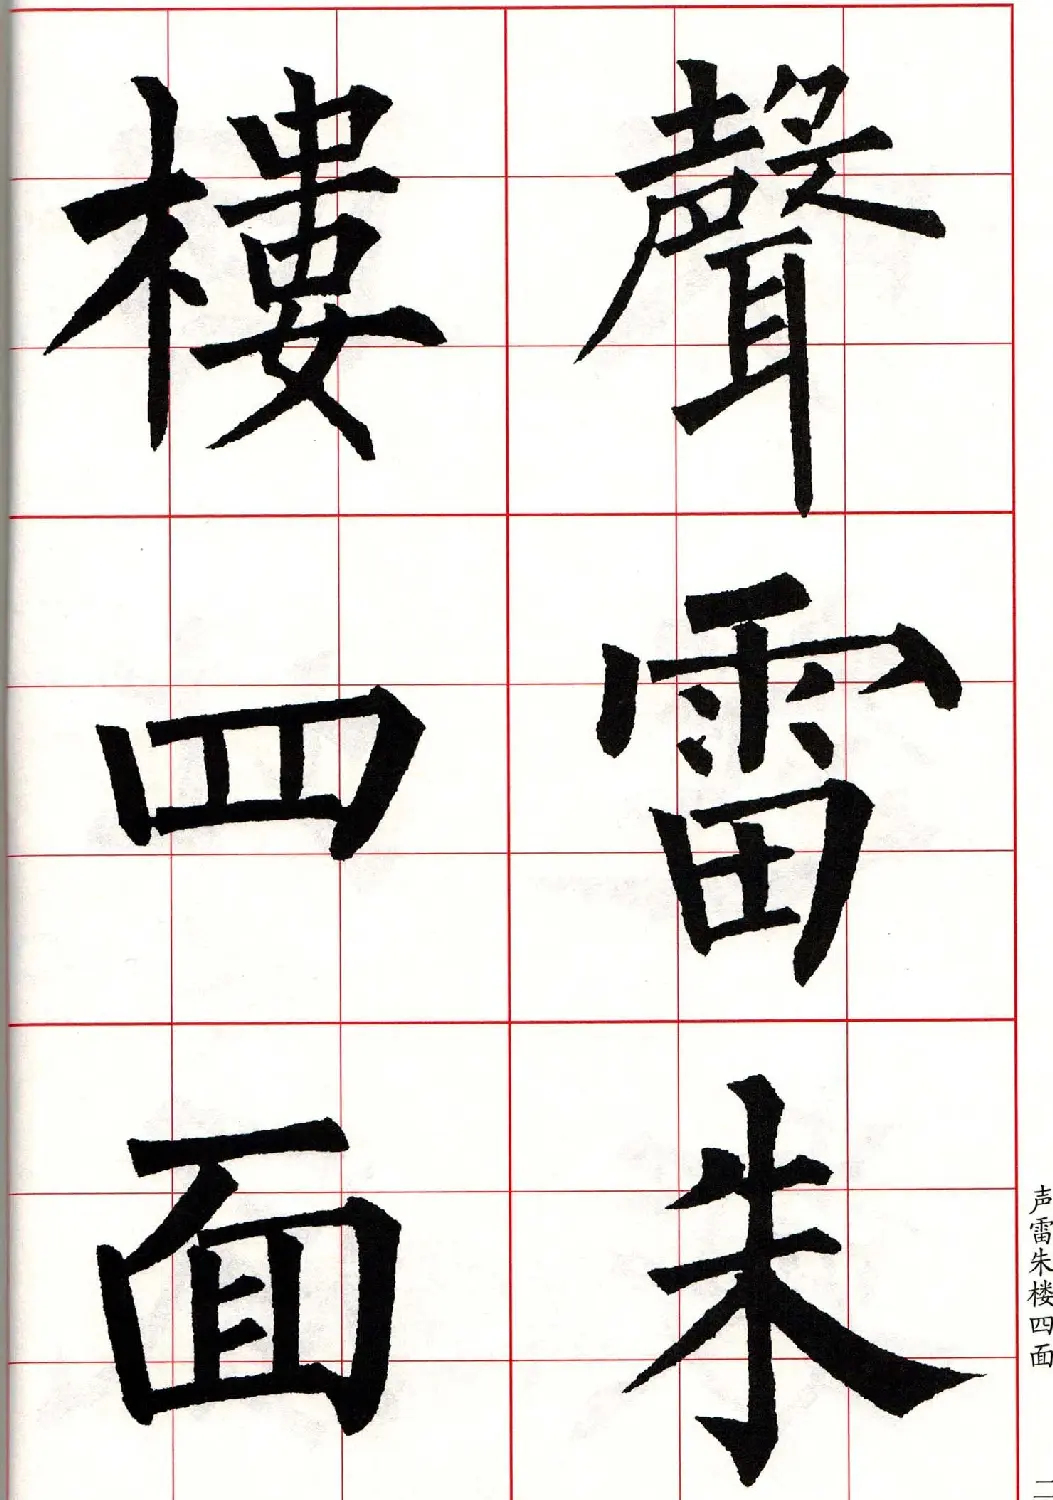 聲雷朱
樓四面
声雷朱楼四面
二